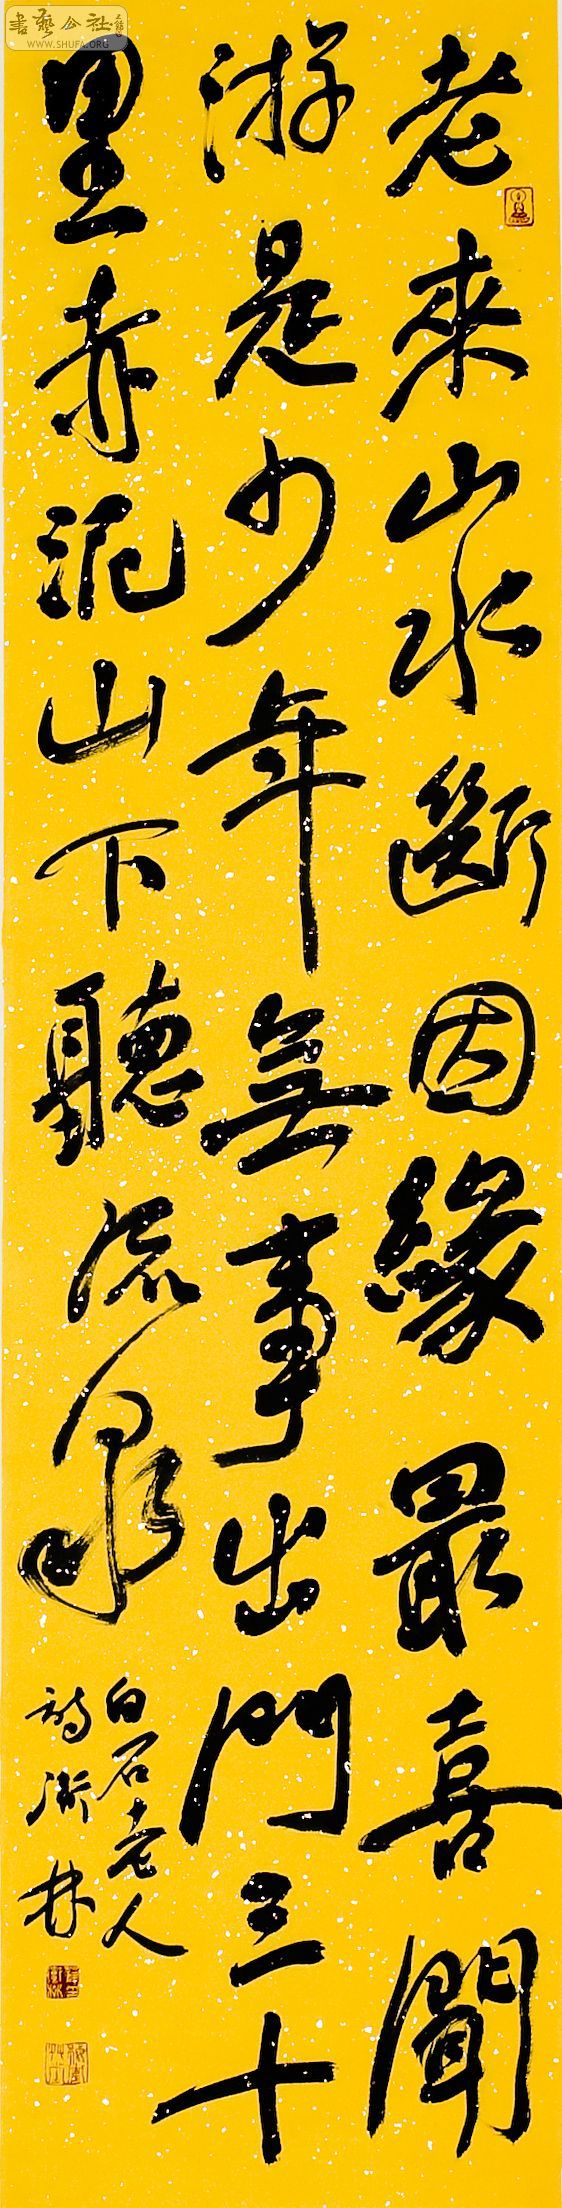 老來山水斷因緣最喜聞
游是少年無事出門三十
里赤泥山下聽流泉
白石老人
詩衛林
書藝公社
WWW.SHUFA.ORG